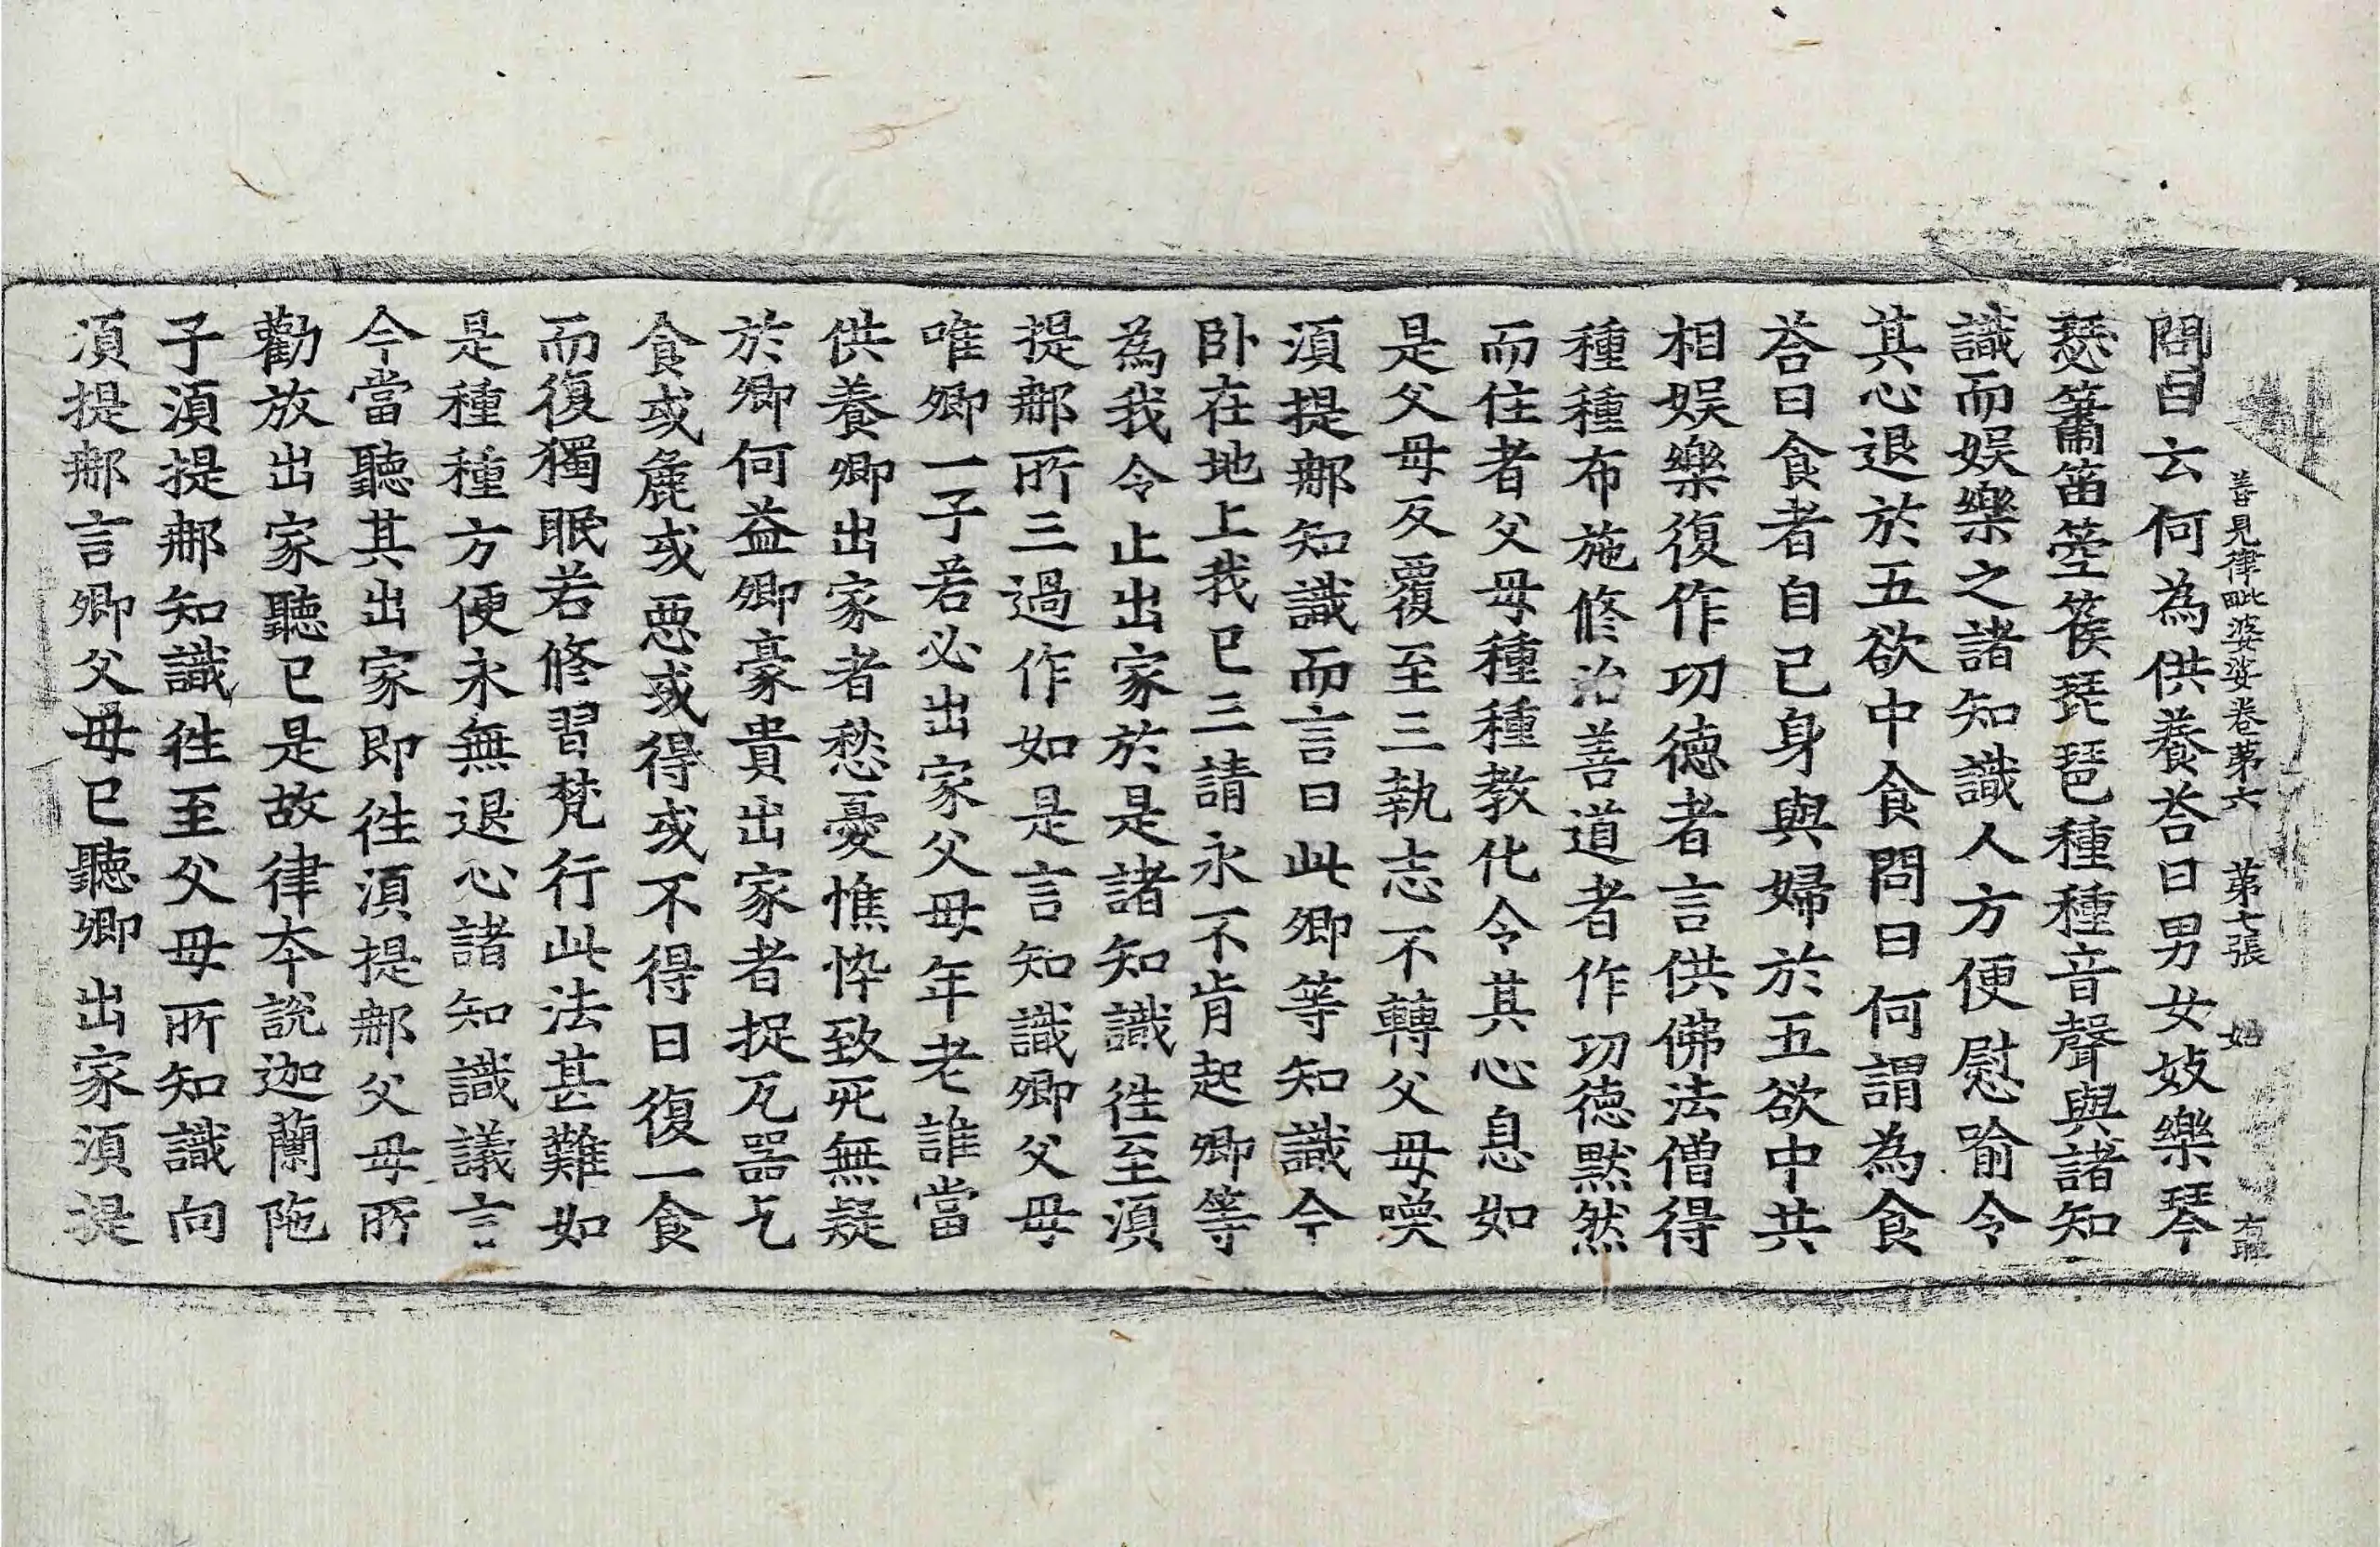 善見律毗婆娑卷第六 第七張 始
問曰云何為供養荅曰男女妓樂琴
瑟簫笛箜篌琵琶種種音聲與諸知
識而娛樂之諸知識人方便慰喻令
其心退於五欲中食問曰何謂為食
荅曰食者自己身與婦於五欲中共
相娛樂復作功德者言供佛法僧得
種種布施修治善道者作功德默然
而住者父母種種教化令其心息如
是父母反覆至三執志不轉父母喚
湏提𨚗知識而言曰此卿等知識今
卧在地上我已三請永不肯起卿等
為我令止出家於是諸知識徃至湏
提𨚗所三過作如是言知識卿父母
唯卿一子若必出家父母年老誰當
供養卿出家者愁憂憔悴致死無疑
於卿何益卿豪貴出家者捉瓦器乞
食或麁或惡或得或不得日復一食
而復獨眠若修習梵行此法甚難如
是種種方便永無退心諸知識議言
今當聽其出家即徃湏提𨚗父母所
勸放出家聽已是故律本說迦蘭陁
子湏提𨚗知識徃至父母所知識向
湏提𨚗言卿父母已聽卿出家湏提